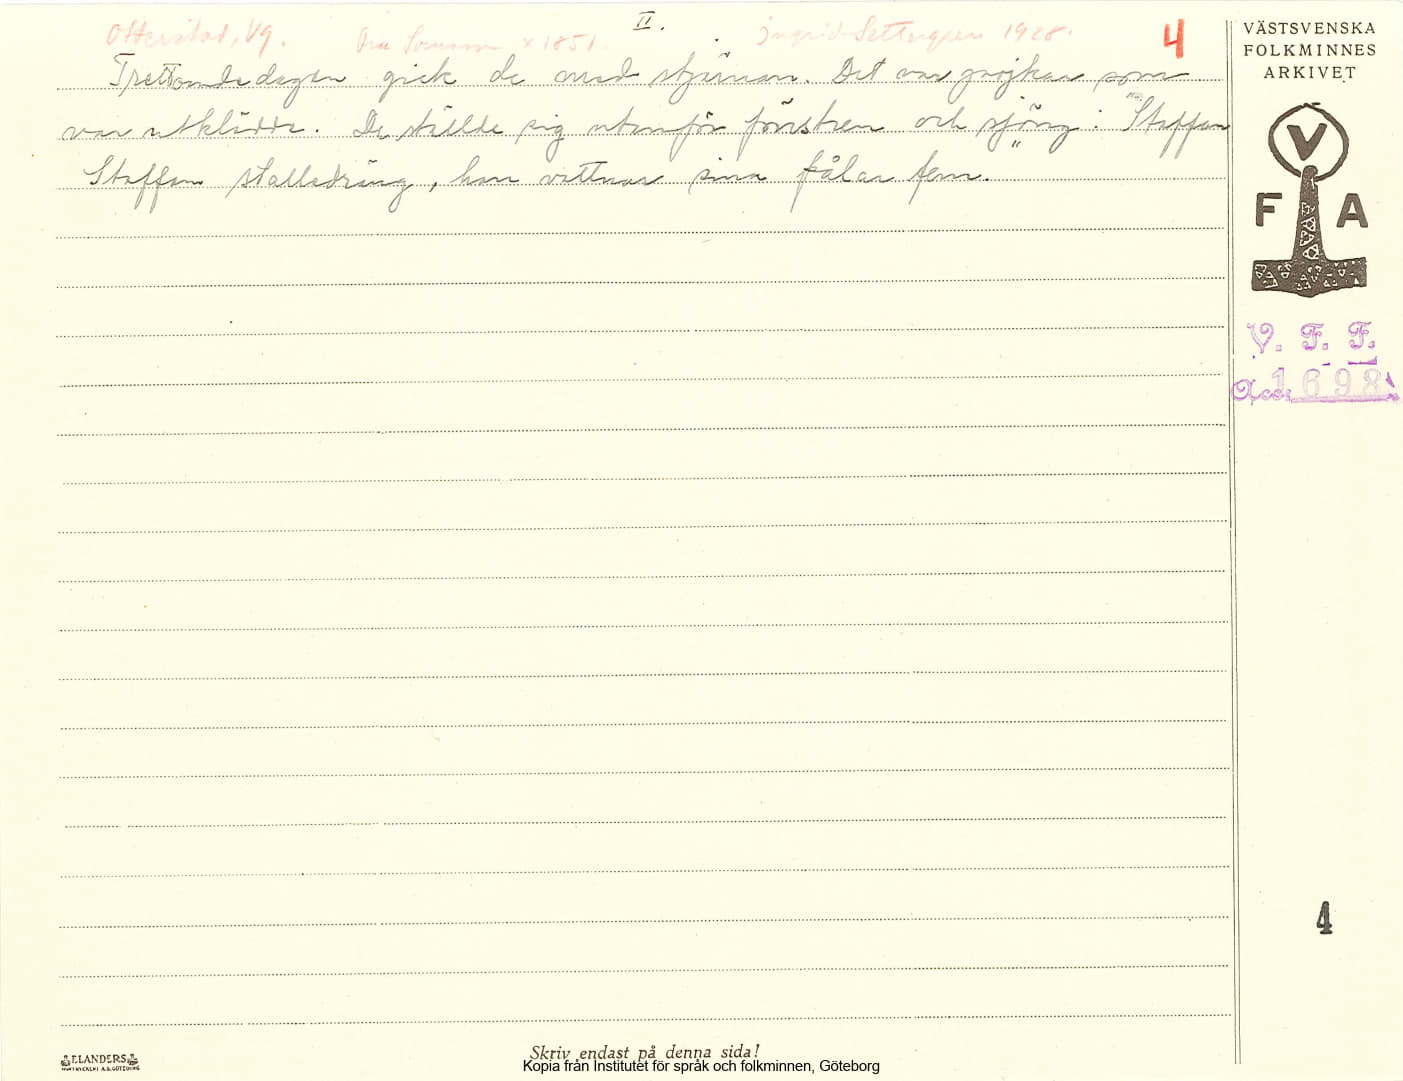 II.
Otterstad, Vg. 1851. Ingrid 1928. 4
Trettondedagen gick de med stjärnan. Det var pojkar som
var utklädda. De ställde sig utanför fönstren och sjöng: "Staffan
Staffan stalledräng, han vattnar sina fålar fem.
VÄSTSVENSKA
FOLKMINNES
ARKIVET
V
F A
V. F. F.
Acc. 1698
4
ELANDERS
Skriv endast på denna sida!
Kopia från Institutet för språk och folkminnen, Göteborg